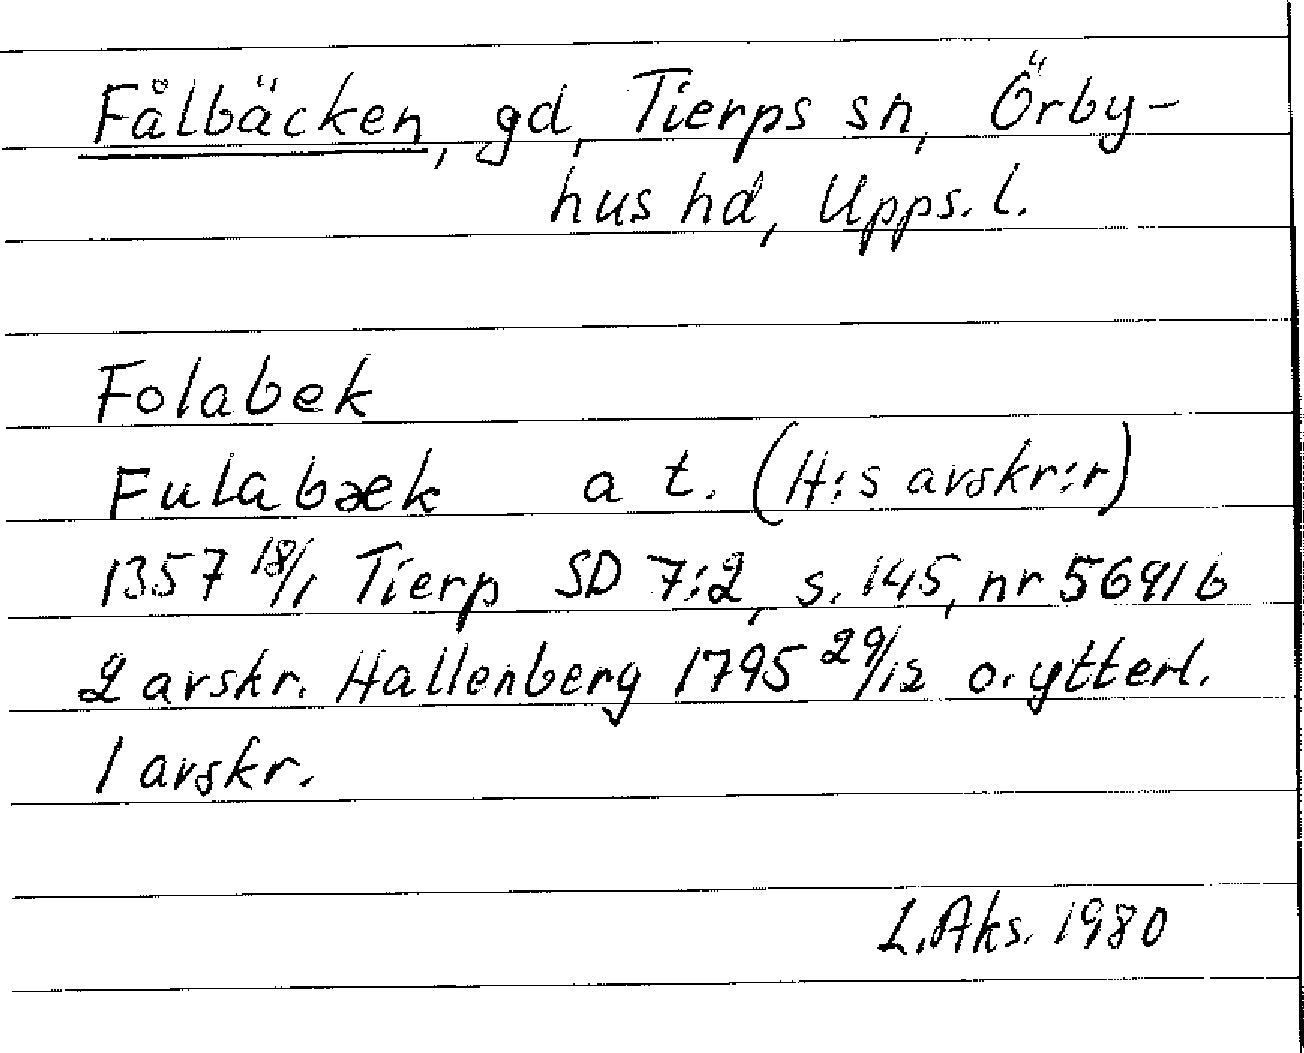 Fålbäcken, gd, Tierps sn, Örby-
hus hd, Upps. l.
Folabek
Fulabæk a t. (H:s avskr:r)
1357 18/1 Tierp SD 7:2, s. 145, nr 5691 b
2 avskr. Hallenberg 1795 29/12 o. ytterl.
1 avskr.
L. Aks. 1980